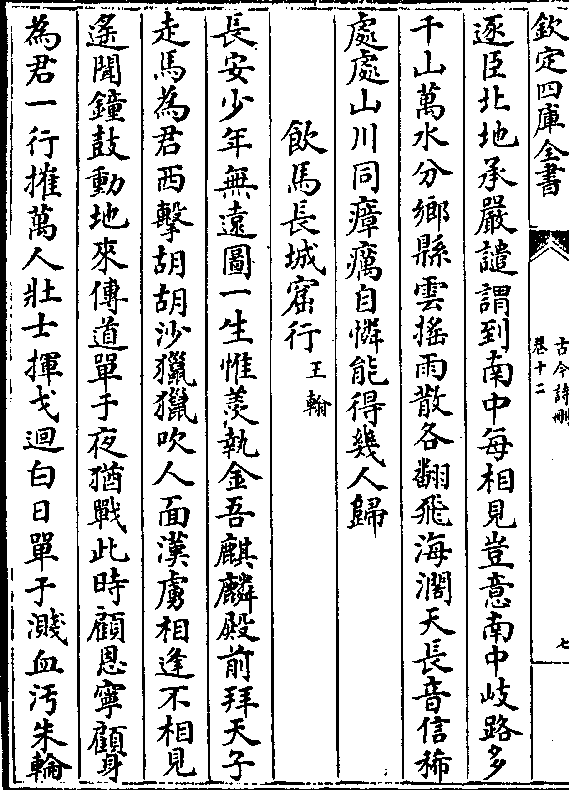 欽定四庫全書
古今詩刪
卷十二
七
逐臣北地承嚴譴謂到南中每相見豈意南中岐路多
千山萬水分鄉縣雲搖雨散各翻飛海濶天長音信稀
處處山川同瘴癘自憐能得幾人歸
飲馬長城窟行王翰
長安少年無遠圖一生惟羨執金吾麒麟殿前拜天子
走馬為君西擊胡胡沙獵獵吹人面漢虜相逢不相見
遙聞鐘鼓動地來傳道單于夜猶戰此時顧恩寧顧身
為君一行摧萬人壯士揮戈迴白日單于濺血汚朱輪